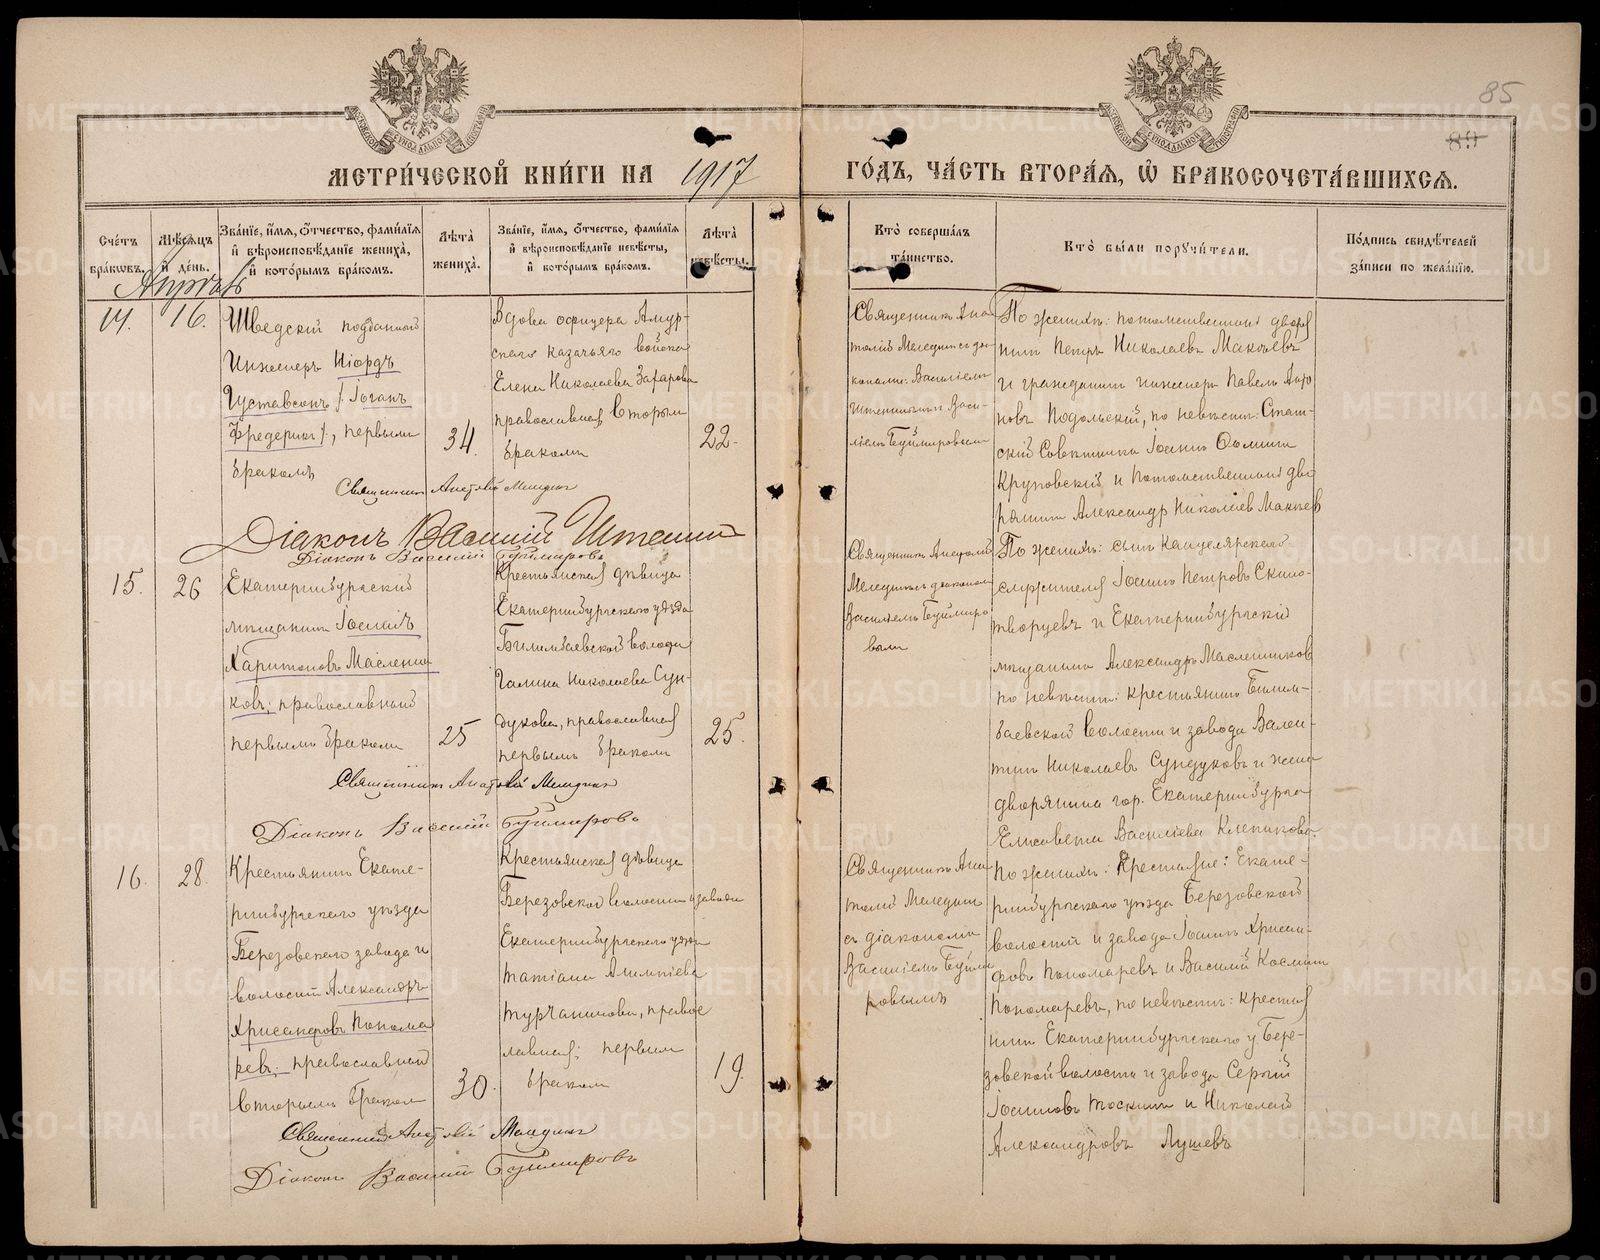 85
89
МЕТРИ́ЧЕСКОЙ КНИ́ГИ НА 1917 ГО́ДЪ, ЧА́СТЬ ВТОРА́Я, Ѡ҆ БРАКОСОЧЕТА́ВШИХСЯ.
Сче́тъ бра́кѡвъ.
Мѣ́сяцъ и҆ де́нь.
Зва́нїе, и҆́мя, ѻ҆́тчество, фами́лїя и҆ вѣроисповѣ́данїе жениха̀, и҆ кото́рымъ бра́комъ.
Лѣ́та жениха̀.
Зва́нїе, и҆́мя, ѻ҆́тчество, фами́лїя и҆ вѣроисповѣ́данїе невѣ́сты, и҆ кото́рымъ бра́комъ.
Лѣ́та невѣ́сты.
Кто̀ соверша́лъ та́инство.
Кто̀ бы́ли поручи́тели.
По́дпись свидѣ́телей за́писи по жела́нїю.
Апрѣль
14.
16.
Шведскій подданный
Инженеръ Ніордъ
Густавсонъ /Іоганъ
Фредерик/, первымъ
бракомъ
34
Вдова офицера Амур-
скаго казачьяго войска
Елена Николаева Захарова
православная, вторым
бракомъ
22.
Священникъ Ана
толій Меледин съ діа-
конами: Василіемъ
Штенниковым Васи-
ліемъ Буймировым
По женихѣ: потомственный дворя
нинъ Петръ Николаевъ Макѣевъ
и гражданинъ инженеръ Павелъ
новъ Подольскій, по невѣстѣ: Стат-
скій Совѣтникъ Іоаннъ Ѳомичъ
Круковскій и потомственный дво-
рянинъ Александр Николаев Макѣев
Священникъ Анатолій Меледин
Діаконъ Василій
Діаконъ Василій Буймировъ
15.
26
Екатеринбургскій
мѣщанинъ Іоаннъ
Харитоновъ Масленни
ковъ; православный
первымъ бракомъ
25
Крестьянская дѣвица
Екатеринбургскаго уѣзда
Билимбаевской волости
Галина Николаева Сун-
дукова, православная
первымъ бракомъ
25.
Священникъ Анатолій
Меледин съ діакономъ
Василіемъ Буймиро
вымъ
По женихѣ: сынъ канцелярскаго
служителя Іоаннъ Петровъ Скоро-
творцевъ и Екатеринбургскій
мѣщанинъ Александръ Масленников
по невѣстѣ: крестьянинъ Билим-
баевской волости и завода Вален-
тинъ Николаевъ Сундуковъ и жена
дворянина гор. Екатеринбурга
Елисавета Василіева Клепикова.
Священникъ Анатолій Меледин
Діаконъ Василій Буймировъ
16.
28.
Крестьянинъ Екате-
ринбургскаго уѣзда
Березовскаго завода и
волости Александръ
Хрисанфовъ Понома
ревъ; православный
вторымъ бракомъ
30.
Крестьянская дѣвица
Березовской волости и завода
Екатеринбургскаго уѣзда
Татіана Алимпіева
Турчанинова, право
славная; первым
бракомъ
19.
Священникъ Ана
толій Меледин
съ діакономъ
Василіемъ Буйми
ровымъ
По женихѣ: Крестьяне: Екате-
ринбургскаго уѣзда Березовской
волости и завода Іоаннъ Хрисан-
фовъ Пономаревъ и Василій Космин
Пономаревъ, по невѣстѣ: крестья
нинъ Екатеринбургскаго у Бере-
зовской волости и завода Сергій
Іоанновъ Тоскинъ и Николай
Александровъ Лушевъ
Священникъ Анатолій Меледин
Діаконъ Василій Буймировъ
METRIKI.GASO-URAL.RU